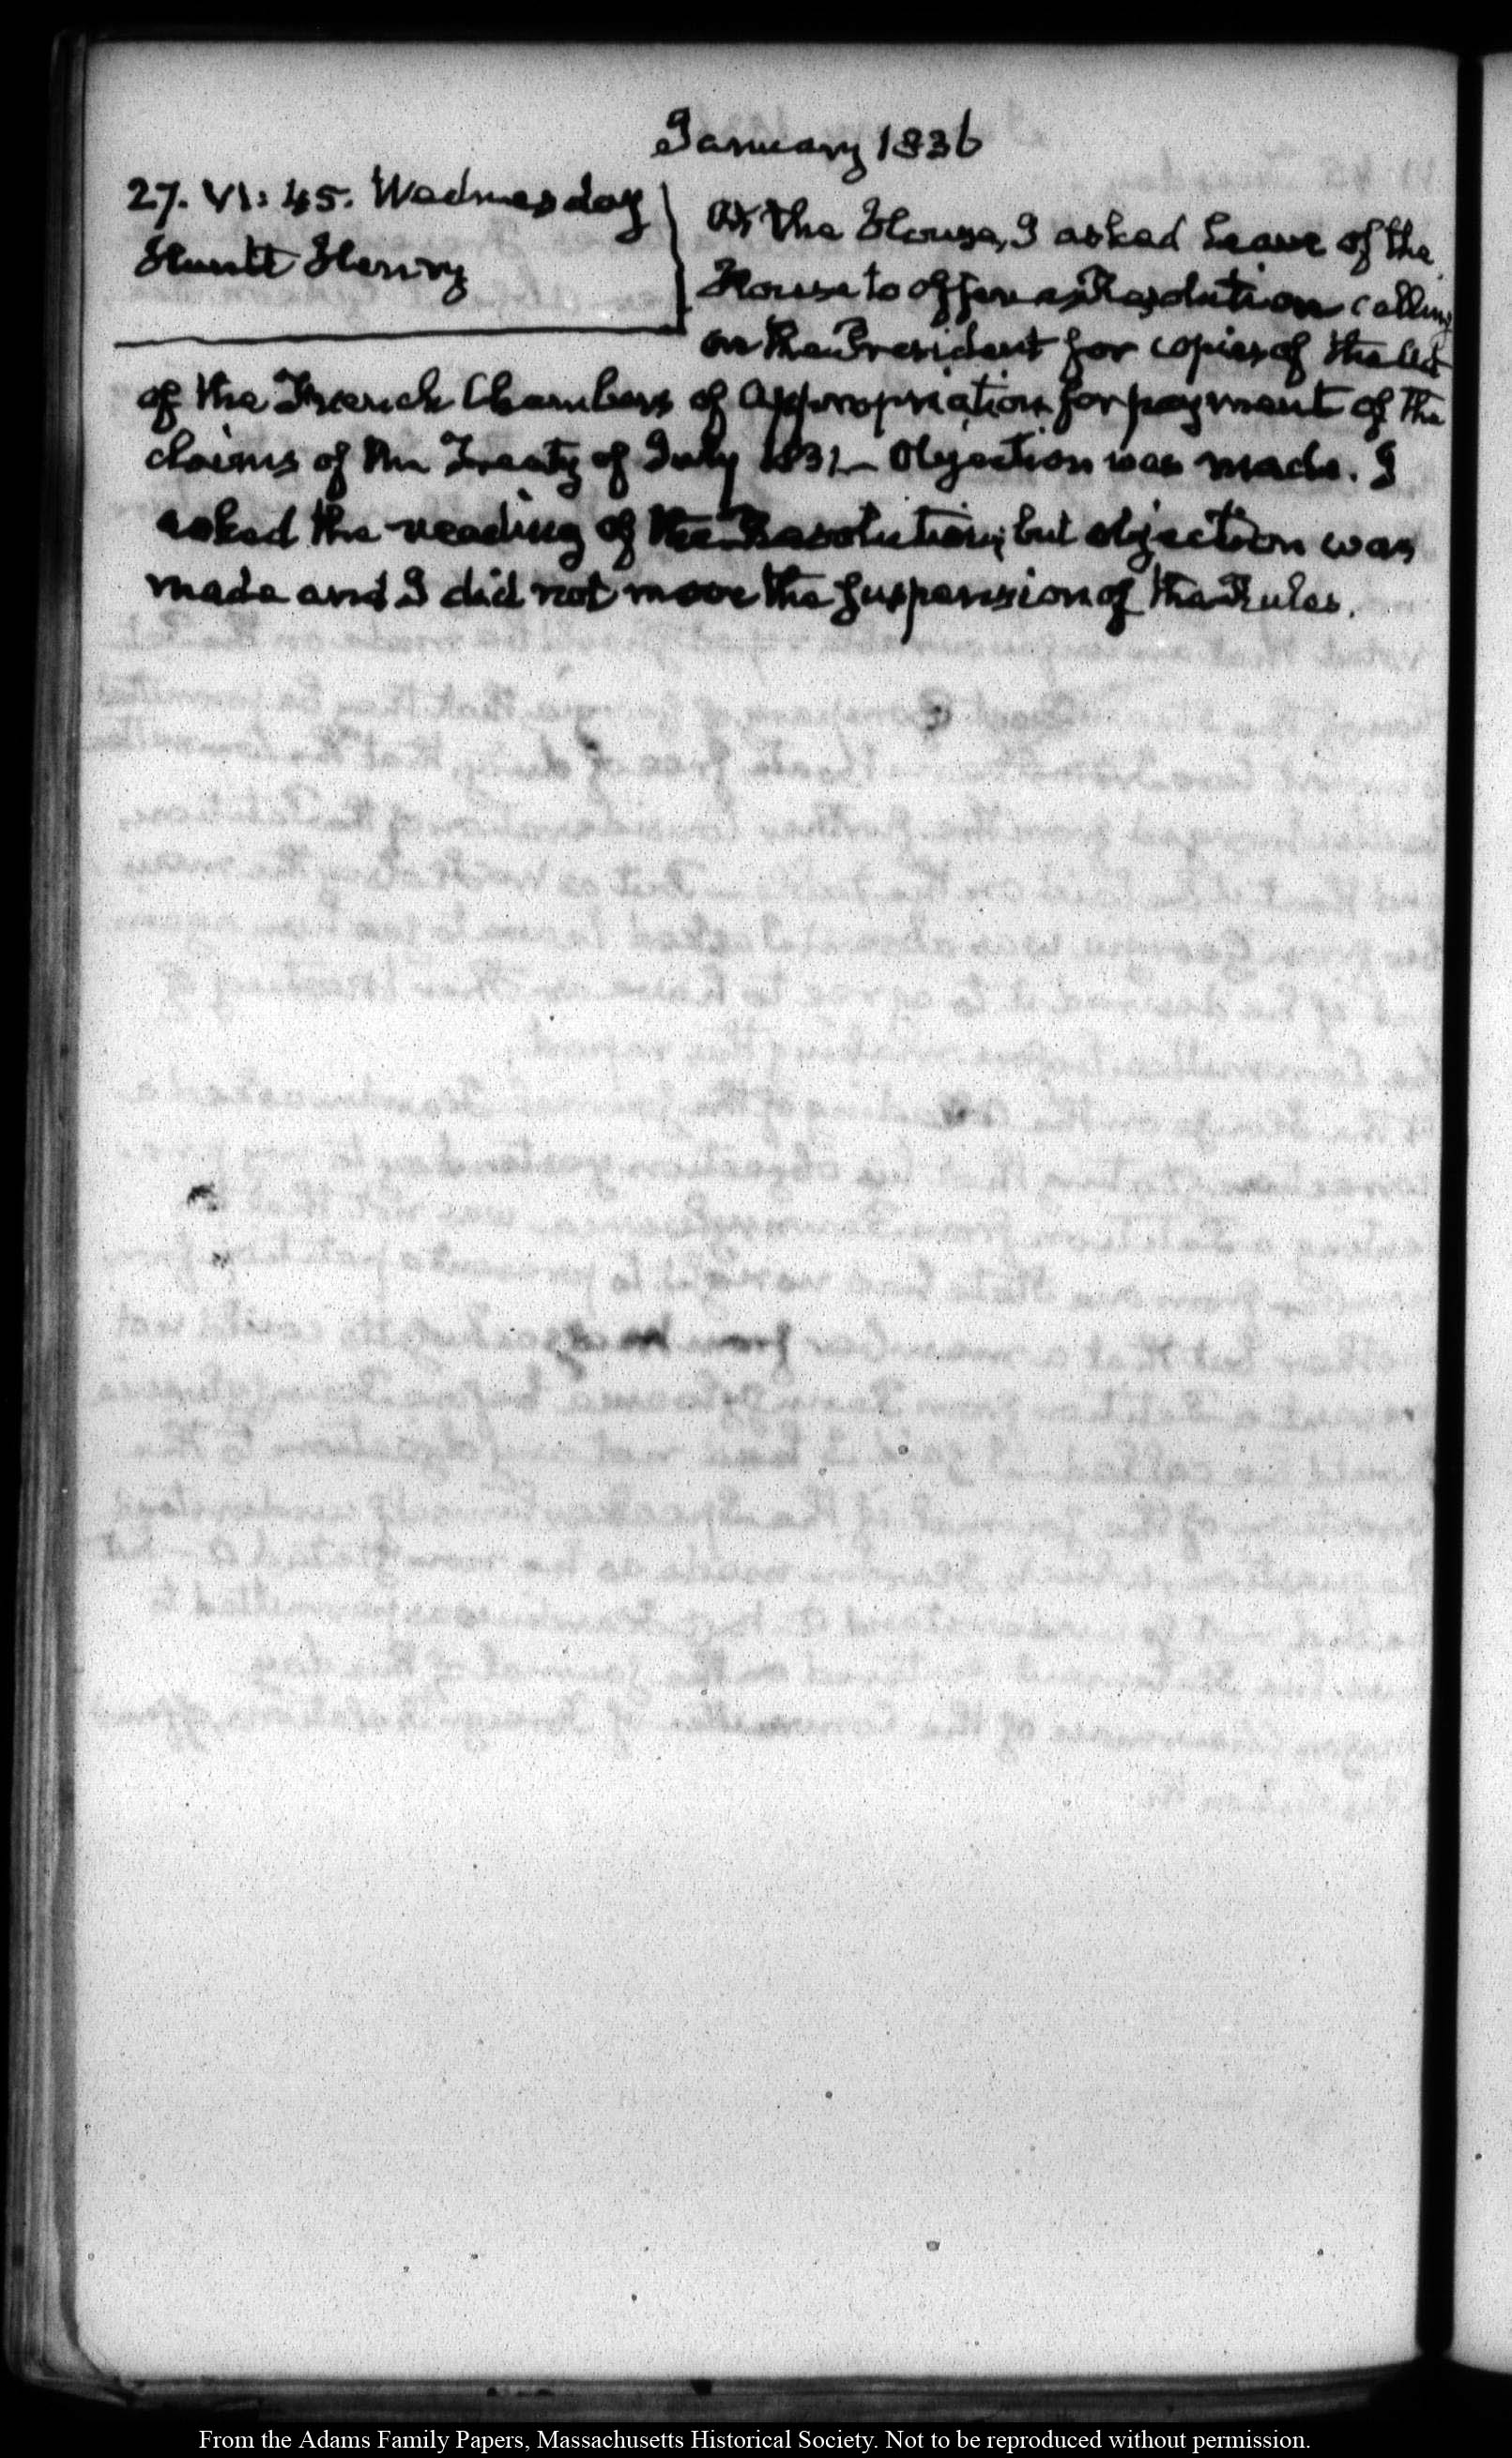 January 1836
27. VI: 45. Wednesday
Huntt Henry
At the House, I asked leave of the
House to offer a Resolution calling
on the President for copies of the Act
of the French Chambers of Appropriation for payment of the
claims of the Treaty of July 1831_ Objection was made. I
asked the reading of the Resolution; but objection was
made and I did not move the suspension of the Rules.
From the Adams Family Papers, Massachusetts Historical Society. Not to be reproduced without permission.